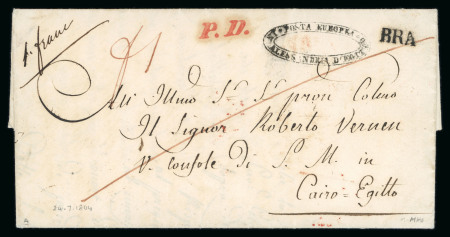 p. franc
P.D.
POSTA EUROPEA
ALESSANDRIA D'EGITTO
BRA
All' Illmo Sr. Sr. pron Coleno
Il Signor Roberto Vernen
V. Console Di S. M. in
Cairo-Egitto